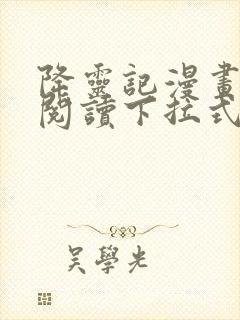 降靈記漫畫
閱讀下拉式
吳學光